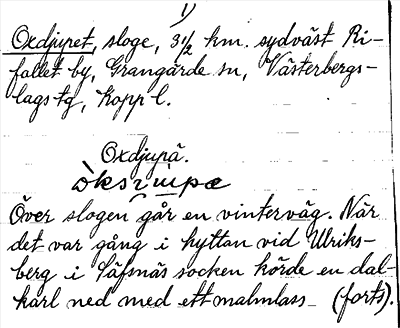 1)
Oxdjupet, sloge, 3½ km. sydväst Ri-
fallet by, Grangärde sn, Västerbergs-
lags tg, Kopp l.
Oxdjupä.
Över slogen går en vinterväg. När
det var gång i hyttan vid Ulriks-
berg i Säfsnäs socken körde en dal-
karl ned med ett malmlass (forts).